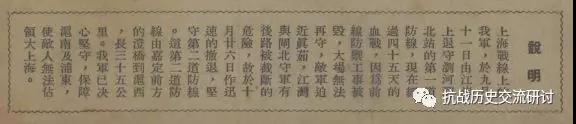 說明
上海戰線上
我軍，於九
十一日由江
上退守瀏河
北站的第一
防線，現在
過四十五天的
血戰，因爲前
線防禦工事被
毀，大場無法
再守，敵軍迫
近眞茹，江灣
與閘北守軍有
後路被截斷的
危險，故於十
月廿六日作迅
速的撤退，堅
守第二道防線
。這第二道防
線由嘉定南方
的澄橋到滬西
，長三十五公
里。我軍已决
心堅守，保障
滬南及浦東，
使敵人無法佔
領大上海。
抗战历史交流研讨